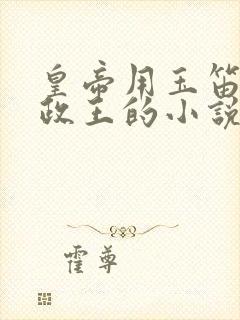 皇帝用玉笛
政王的小説
霍尊